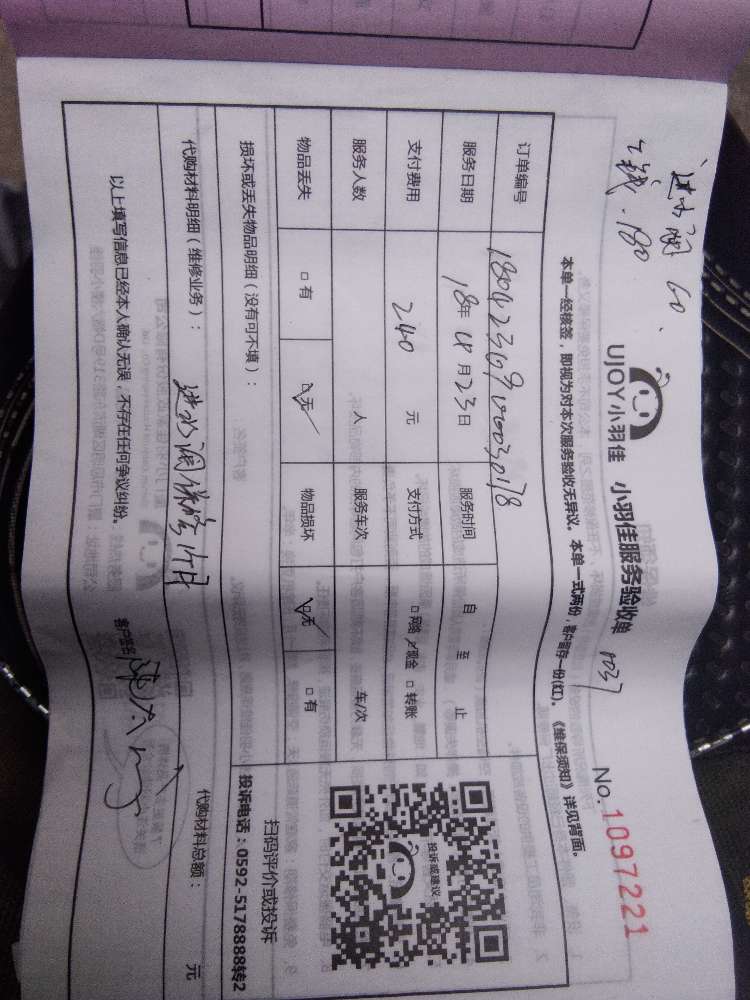 进水阀 60.
工钱.180
UJOY小羽佳 小羽佳服务验收单 1037
No.1097221
本单一经核签，即视为对本次服务验收无异议。本单一式两份，客户留存一份(红)。《维保须知》详见背面。
订单编号
服务日期 18年 04月23日 服务时间 自 至 止
支付费用 240 元 支付方式 □网络 ☑现金 □转账
服务人数 人 服务车次 车/次
物品丢失 □有 ☑无 物品损坏 ☑无 □有
投诉或建议
损坏或丢失物品明细（没有可不填）：
扫码评价或投诉
投诉电话：0592-5178888转2
代购材料明细（维修业务）： 进水阀保修
代购材料总额： 元
以上填写信息已经本人确认无误，不存在任何争议纠纷。 客户签名